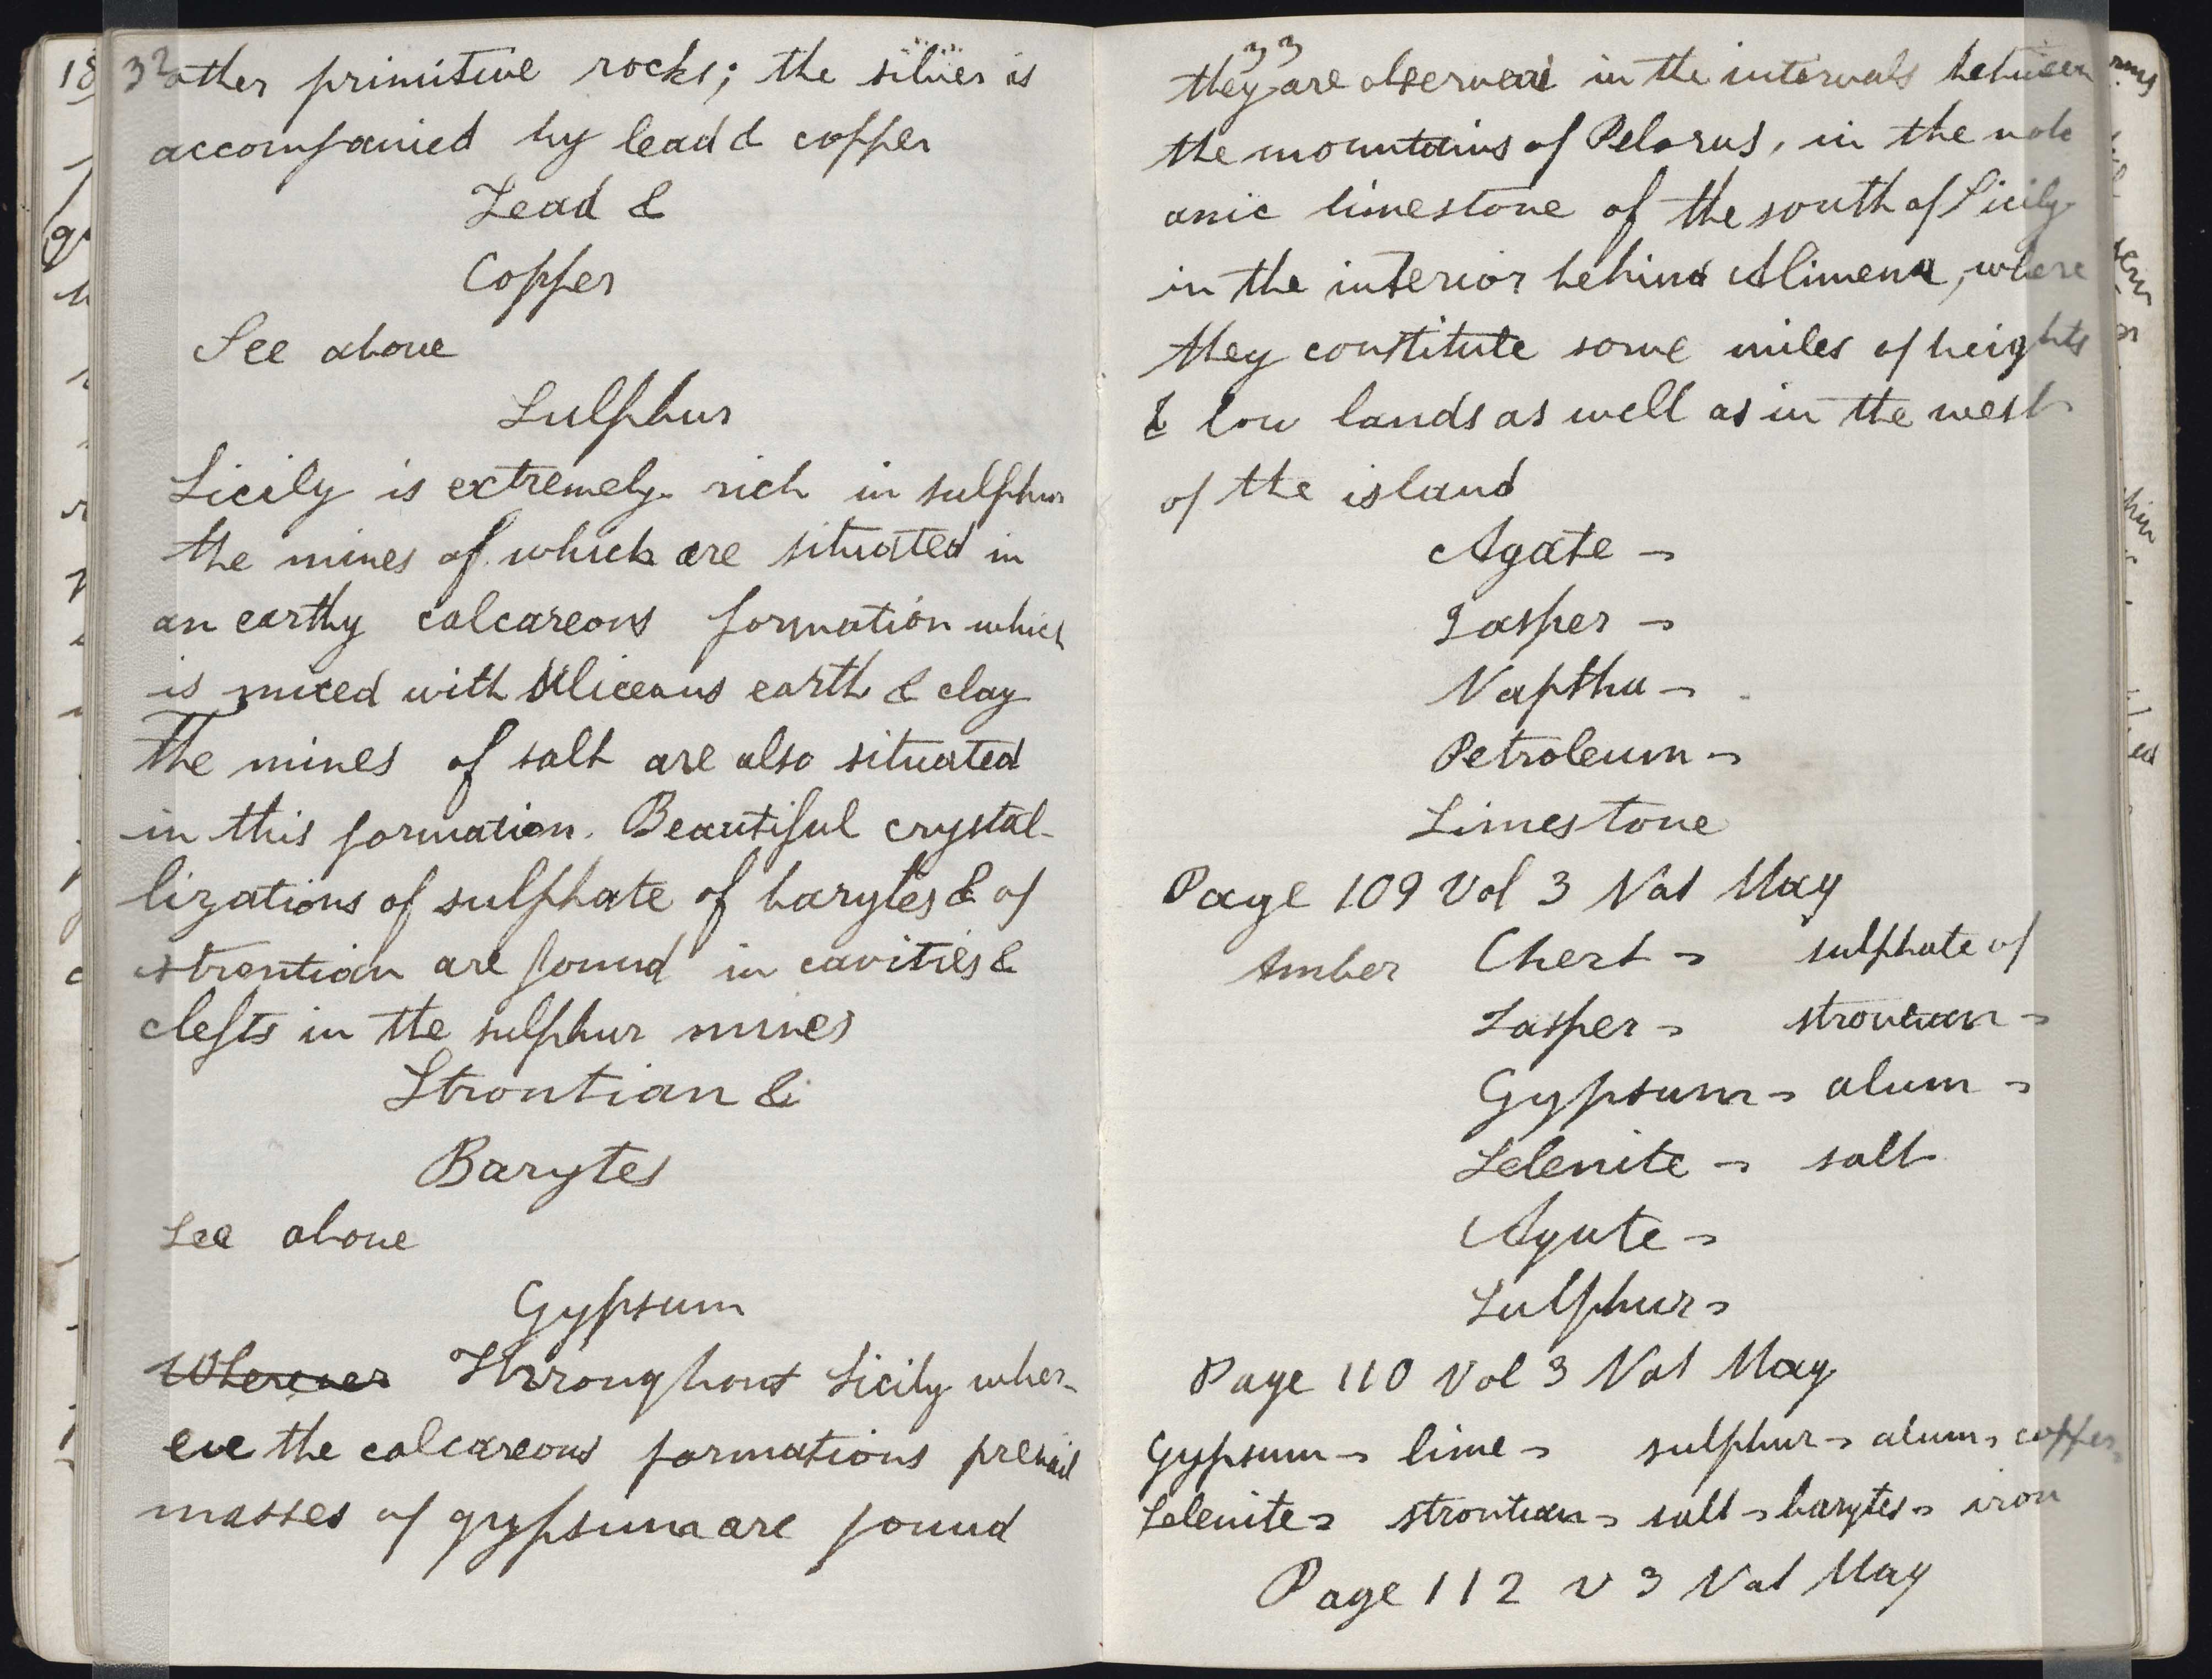 32
other primitive rocks; the silver is
accompanied by lead & copper
Lead &
Copper
See above
Sulphur
Sicily is extremely rich in sulphur
the mines of which are situated in
an earthy calcareous formation which
is mixed with siliceous earth & clay
The mines of salt are also situated
in this formation. Beautiful crystal-
lizations of sulphate of barytes & of
strontian are found in cavities &
clefts in the sulphur mines
Strontian &
Barytes
See above
Gypsum
Wherever Thrroughout Sicily wher-
eve the calcareous formations prevail
masses of gypsum are found
33
they are observed in the intervals between
the mountains of Pelorus, in the volc
anic limestone of the south of Sicily
in the interior behind Alimena, where
they constitute some miles of heights
& low lands as well as in the west
of the island
Agate -
Jasper -
Naptha -
Petroleum -
Limestone
Page 109 Vol 3 Nat May
Amber Chert - sulphate of
Jasper - strontian -
Gypsum - alum -
Selenite - salt
Agate -
Sulphur -
Page 110 Vol 3 Nat May
Gypsum - lime - sulphur - alum - copper -
Selenite - strontian - salt - barytes - iron
Page 112 v 3 Nat May